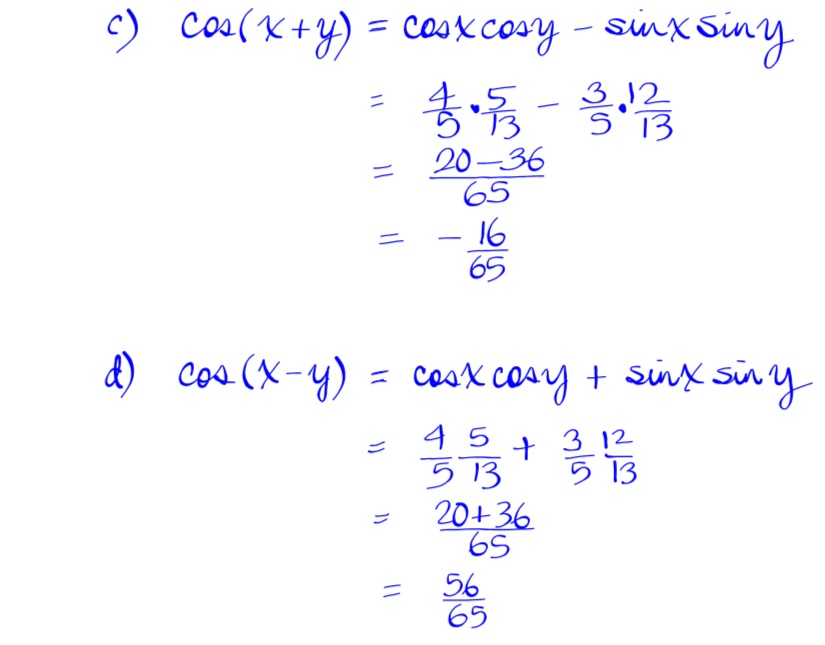 c) cos(x+y) = cosxcosy - sinxsiny
= 4/5 · 5/13 - 3/5 · 12/13
= 20-36/65
= -16/65
d) cos(x-y) = cosxcosy + sinxsiny
= 4/5 5/13 + 3/5 12/13
= 20+36/65
= 56/65